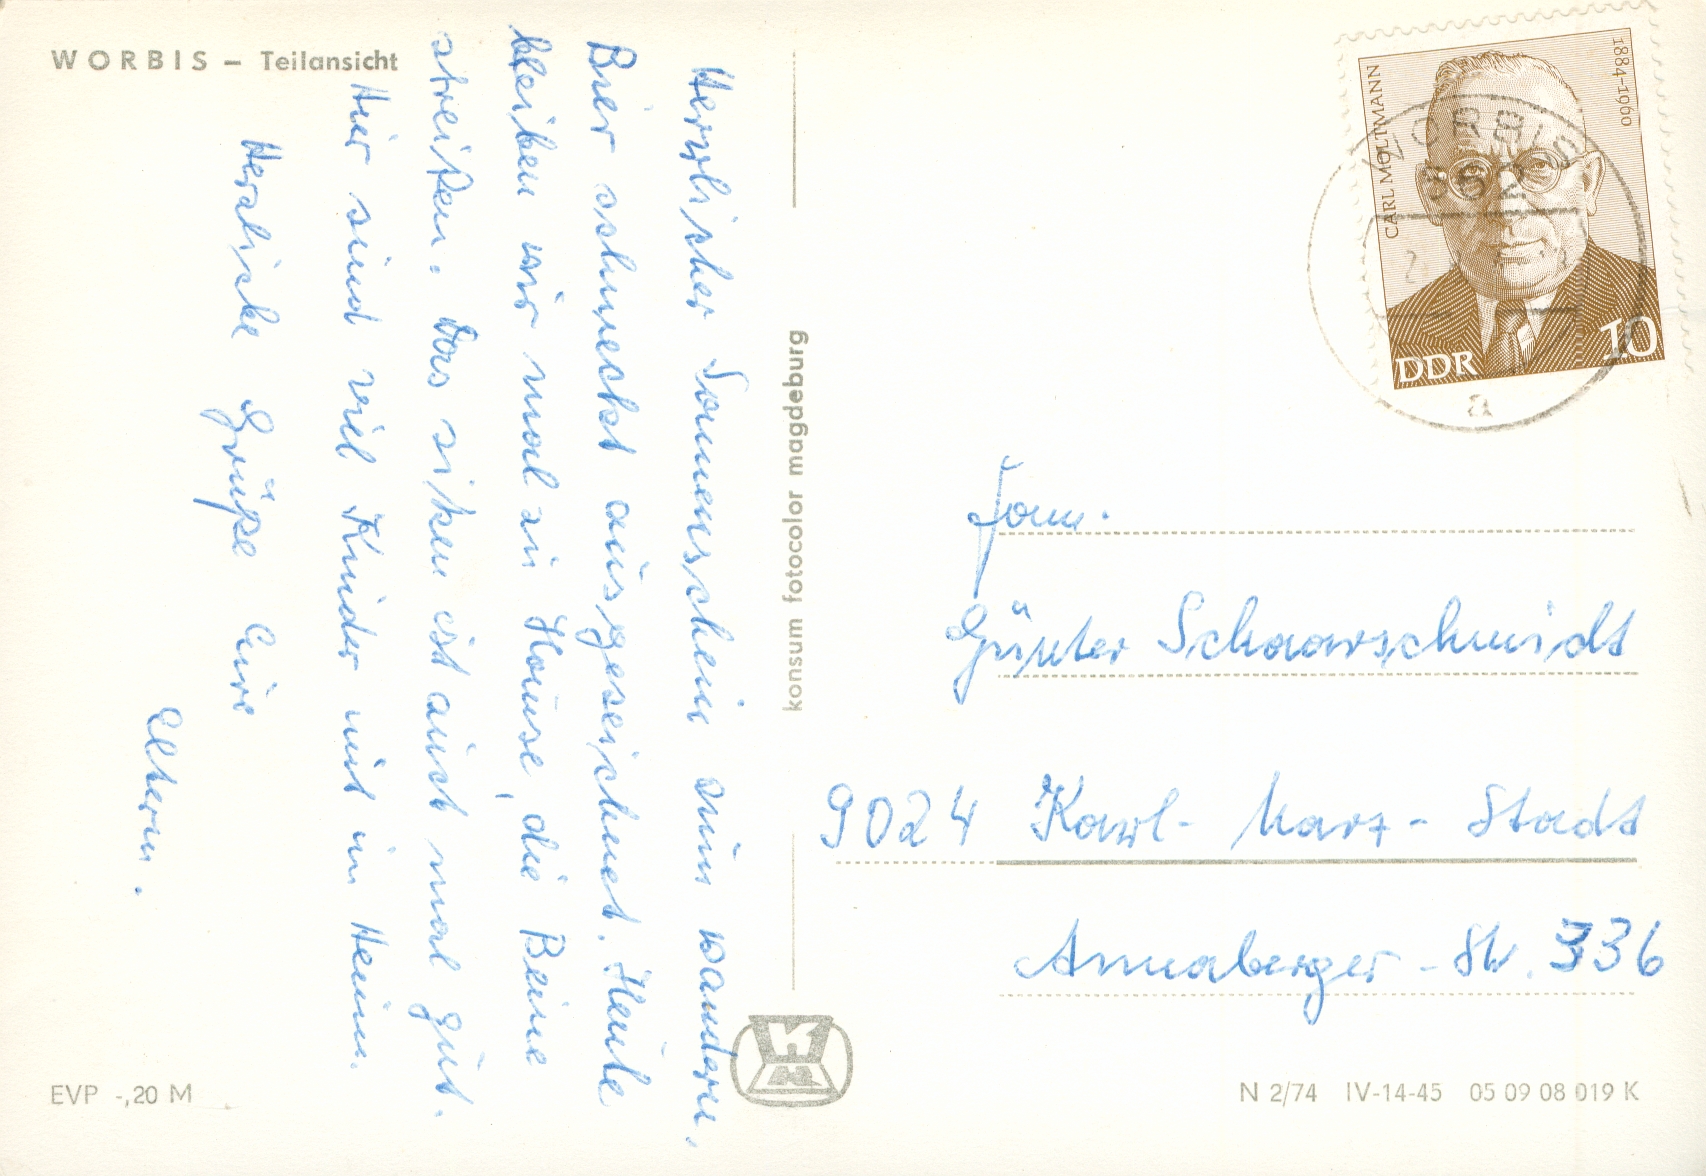 WORBIS – Teilansicht
Herrlicher Sonnenschein zum wandern,
Bier schmeckt ausgezeichnet. Heute
bleiben wir mal zu Hause, die Beine
streiken. Das sitzen ist auch mal gut.
Hier sind viel Kinder mit im Heim.
Herzliche Grüße Eure
Eltern.
konsum fotocolor magdeburg
CARL MOLTMANN
1884-1960
DDR
10
WORBIS
a
Fam.
Günter Schaarschmidt
9024 Karl-Marx-Stadt
Annaberger-Str. 336
EVP -,20 M
N 2/74 IV-14-45 05 09 08 019 K